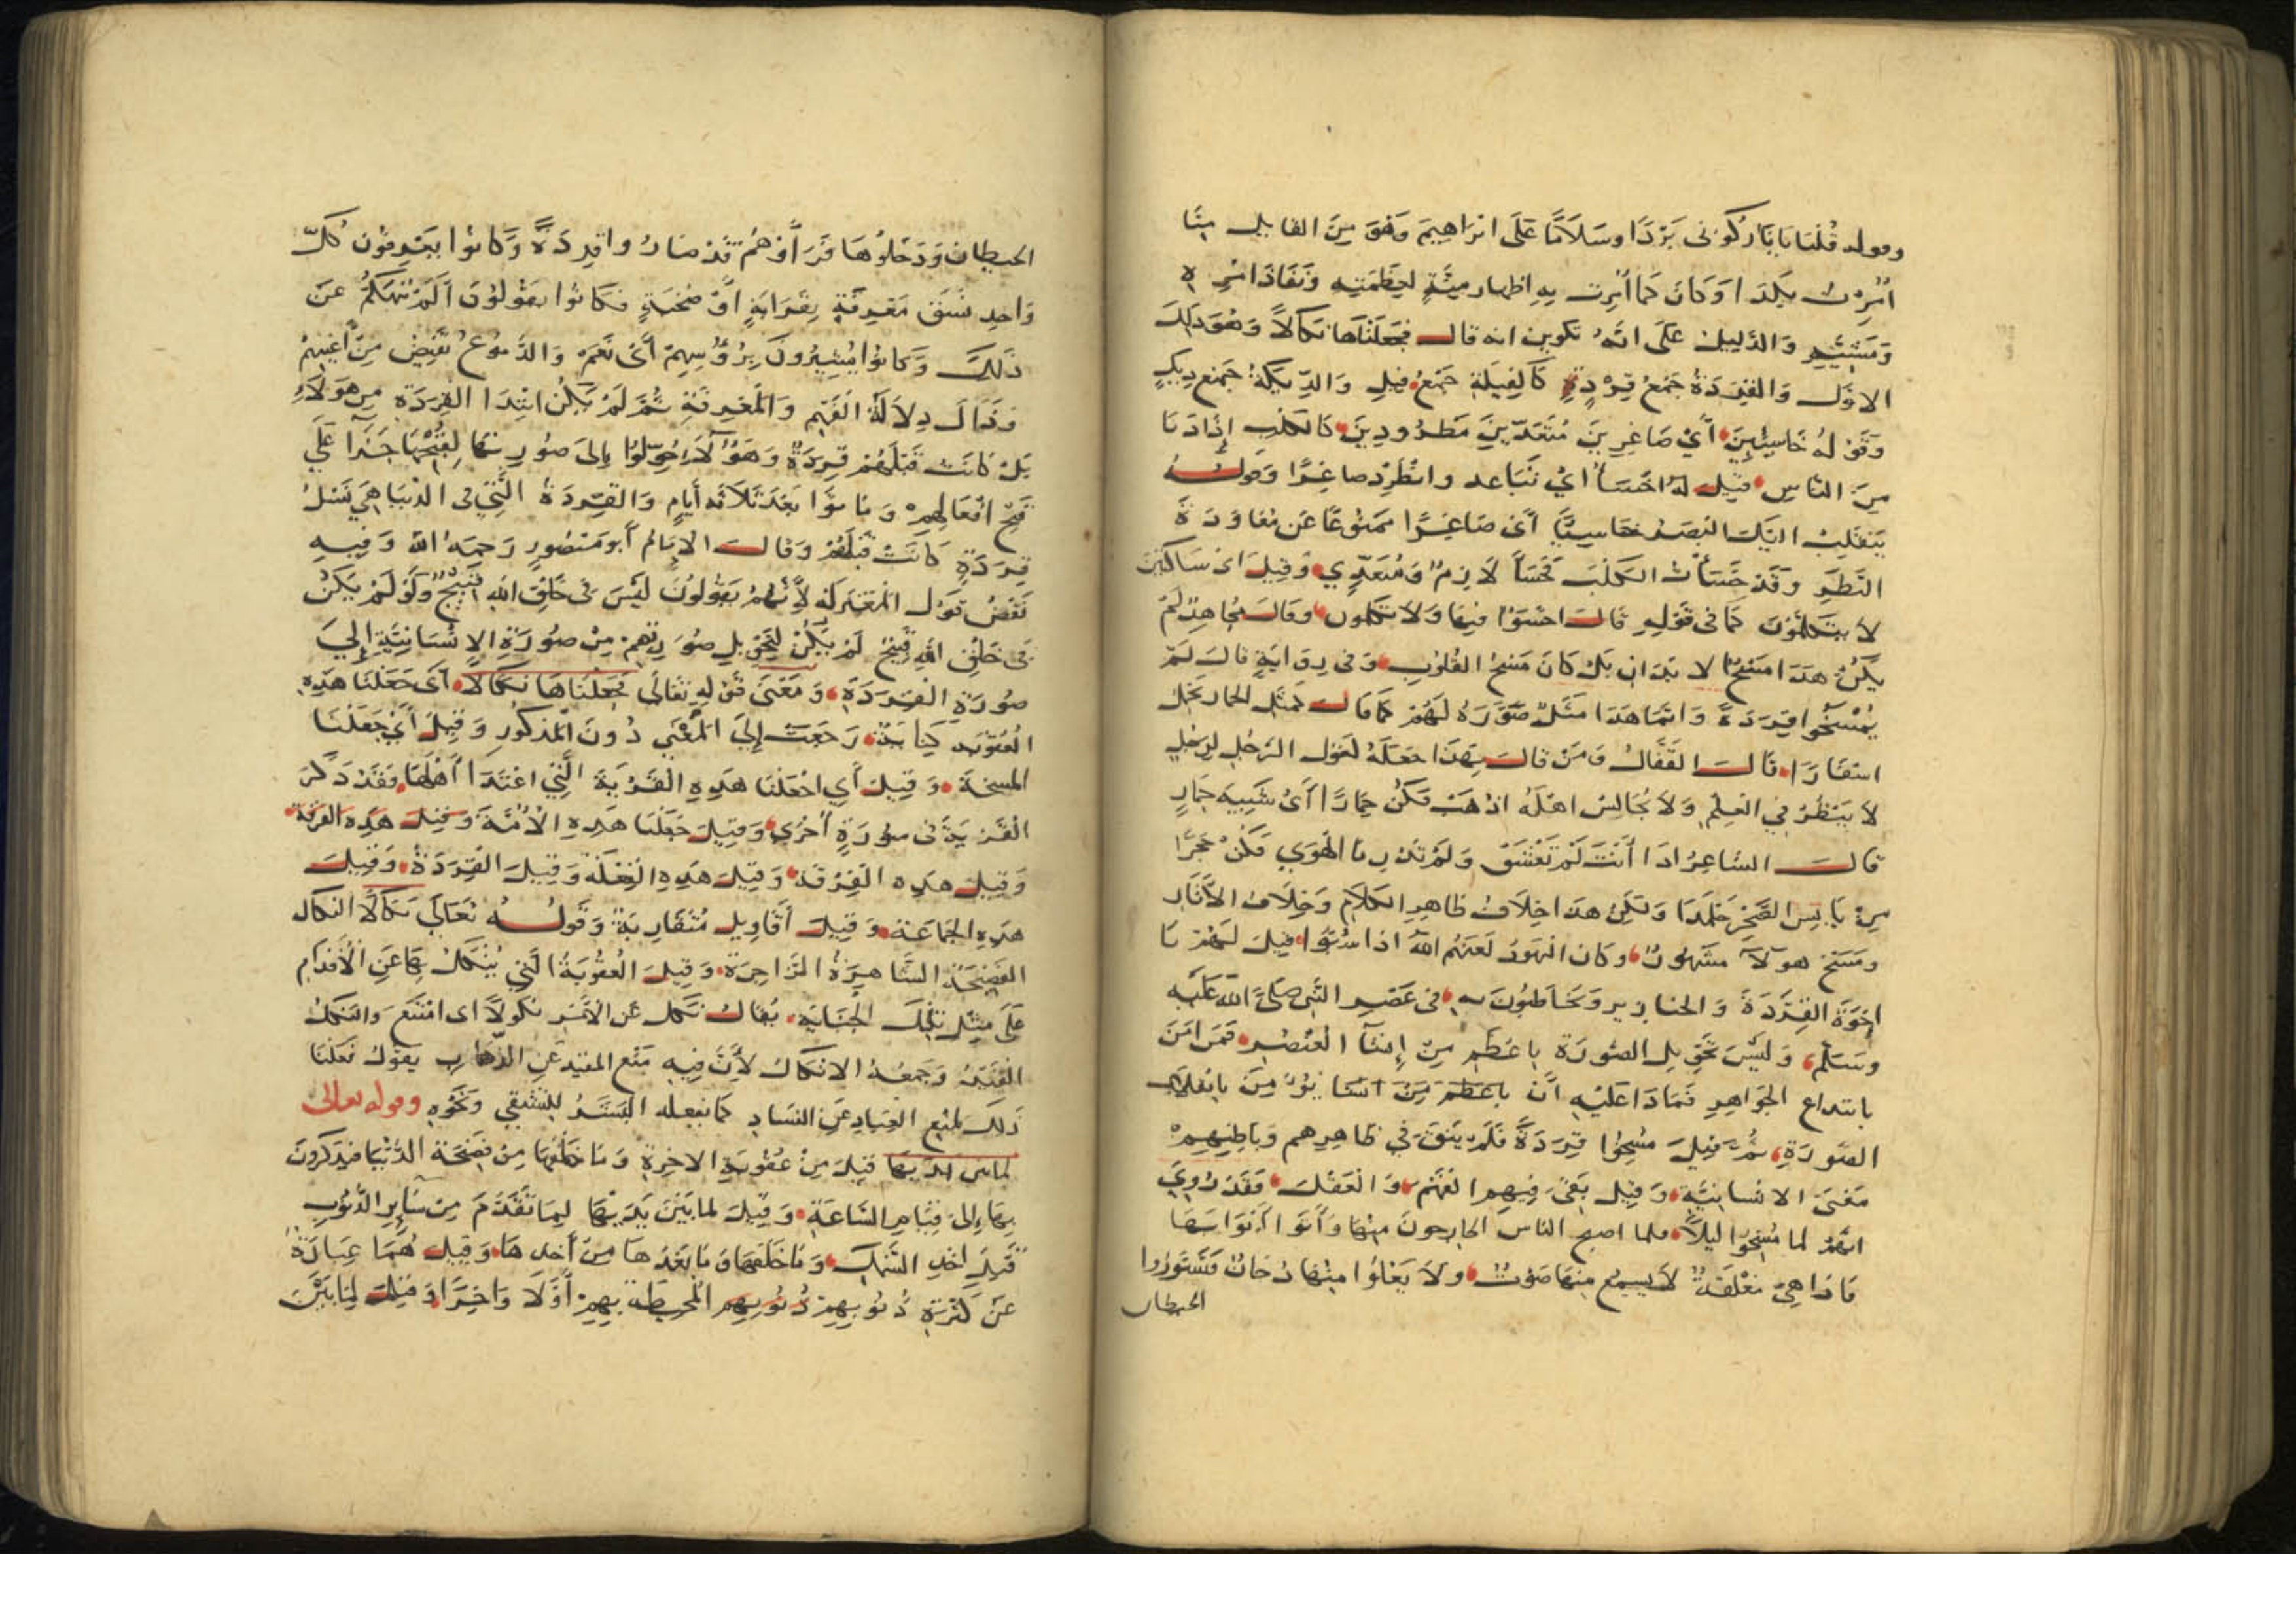 وقوله قُلْنَا يَا نَارُ كُونِي بَرْدًا وسَلَامًا عَلَى ابْرَاهِيمَ وَهُوَ مِنَ القايل منَّا
اُمِرْتُ بكَذَا وَكَانَ كَمَا اُمِرت بِهِ اظهار لِعَظَمَتِهِ وَنَفَاذَ امْرِهِ
وَمَشِيَّتِهِ وَالدَّلِيلُ عَلَى انَّهُ تكوين انه قال فَجَعَلْنَاهَا نَكَالًا وَهُوَ كَذَلِكَ
الاوَّل وَالقِرَدَةُ جَمْعُ قِرْدٍ كَالفِيَلَةِ جَمْعُ فِيلٍ وَالدِّيكَةُ جَمْع دِيكٍ
وَقَوْلهُ خَاسِئِينَ أَيْ صَاغِرِينَ مُتَعَدِّينَ مَطْرُودِينَ كَالكَلْبِ إِذَا دَنَا
مِنَ النَّاسِ قِيلَ لَهُ اخْسَأْ ايْ تَبَاعد وانْطَرِدْ صاغِرًا وَقولُهُ
يَنْقَلِبْ اليْكَ البَصَرُ خَاسِيًا أَيْ صَاغِرًا مَمْنُوعًا عَن مُعَاوَدَة
النَّظَرِ وَقَدْ خَسَأْتُ الكَلْبَ فَخَسَأَ لَازِمٌ وَمُتَعَدِّي وَقِيلَ ايْ سَاكتين
لَا يَتَكَلَّمُونَ كَمَا فى قَوْلِهِ قَالَ اخْسَؤُا فِيهَا وَلَا تُكَلِّمُون وَقَالَ مُجَاهِدٌ لَمْ
يَكُنْ هَذَا مَسْخُ الابدان بَلْ كَانَ مَسْخُ القُلُوبِ وَفى رِوَايَةٍ قَالَ لَمْ
يُمْسَخُوا قِرَدَةً وَانَّمَا هَذَا مَثَلٌ صَوَّرَهُ لَهُمْ كَمَا قَالَ كَمَثَلِ الحمار يَحْمِلُ
اسْفَارًا قَالَ القَفَّالُ وَمَنْ قَالَ بِهَذَا جَعَلَهُ كَقَول الرَّجُلِ لِرَجُلٍ
لَا يَنْظُرُ فِي العِلْمِ وَلَا يُجَالِسُ اهْلَهُ اذْهَبْ فَكُنْ حِمَارًا أَيْ شَبِيهَ حِمَارٍ
قَالَ الشَّاعِرُ اذَا أَنْتَ لَمْ تَعْشَقْ وَلَمْ تَدْرِ مَا الهَوَى فَكُنْ حَجَرًا
مِنْ يَابِسِ الصَّخْرِ جَلْمَدَا وَلَكِنْ هَذَا خِلَافُ ظَاهِرِ الكَلَامِ وَخِلَافُ الآثَار
وَمَسْخُ هؤلَآءِ مشْهُورٌ وكان اليَهُودُ لَعَنَهُم اللهُ اذا سُبُّوا قِيلَ لَهُمْ يَا
اِخْوَةَ القِرَدَةَ وَالخنازير وَيُخَاطَبُونَ بِهِ فى عَصْرِ النَّبِي صَلَّى الله عَلَيْهِ
وَسَلَّمَ وَلَيْسَ تَحْوِيل الصُّورَة بِاعْظَم مِنْ إِنشَآءِ العُنْصُرِ فَمَنْ امَنَ
بابتداع الجَوَاهِرِ فَمَاذَا عَلَيْهِ أَن
الصُّورَةِ ثُمَّ قِيلَ مُسِخُوا قِرَدَةً فَلَمْ يَبْقَ فِي ظَاهِرِهِم وَبَاطِنِهِمْ
مَعْنَى الانْسَانِيَّةِ وَقِيلَ بَقِيَ فِيهِمُ الفَهْمُ وَالعَقْلُ فَقَدْ رُوِيَ
انَّهُمْ لما مُسِخُوا لَيْلاً فلما اصبح النَّاسُ الخارجونَ مِنْهَا وَأَتَوا أَبْوَابَهَا
فَاذَا هِيَ مُغْلَقَةٌ لَا يُسمعُ مِنْهَا صَوْتٌ وَلَا يَعْلُوا مِنْهَا دُخَانٌ فَتَسَوَّرُوا
الحيطان
الحيطان وَدَخَلُوهَا فَرَأَوْهُمْ قَدْ صَارُوا قِرَدَةً وَكَانُوا يَعْرِفُون كُلَّ
وَاحِدٍ مَعْرِفَةٍ بِقَرَابَةٍ أَوْ صُحْبَةٍ فكَانُوا يقُولُونَ أَلَمْ نَنْهَكُمْ عَنْ
ذَلِكَ وَكَانُوا يُشِيرُونَ بِرُؤُسِهِمْ أَيْ نَعَمْ وَالدُّمُوعُ تَفِيضُ مِنْ أَعْيُنِهِمْ
وَذَاكَ دِلَالَةُ الفَهْمِ وَالمَعْرِفَةِ ثُمَّ لَمْ يَكُنْ ابْتِدَا القِرَدَةِ مِن هَؤلَاءِ
بَلْ كَانَتْ قَبْلَهُمْ قِرَدَةٌ وَهَؤُلَآءِ حُوِّلُوا إِلَى صُورِتهَا لِقُبْحِهَا جَزَآءً عَلَى
قُبْحِ افْعَالِهِمْ وَمَاتُوا بَعْدَ ثَلَاثَة أَيَّامٍ وَالقِرَدَةُ الَّتِي فى الدُّنْيَا هِيَ نَسْلُ
قِرَدَةٍ كَانَتْ قَبْلَهُمْ وَقَالَ الامَامُ أَبو مَنصُورٍ رَحِمَهُ الله وَفِيهِ
نَقْضُ قَول المُعْتَزِلَةِ لأَنَّهُمْ يَقُولُونَ لَيْسَ فى خَلْقِ اللهِ قَبِيحٌ وَلَوْ لَمْ يَكُنْ
فِى خَلْقِ اللهِ قَبِيحٌ لَمْ يَكُنْ لِتَحْوِيلِ صُورَتِهِمْ مِنْ صُورَةِ الانْسَانِيَّةِ إِلَى
صُورَةِ القِرَدَةِ وَمَعْنَى قَوْلِهِ تَعَالَى فَجَعَلْنَاهَا نَكَالًا أَيْ جَعَلْنَا هَذِهِ
العُقُوبَةَ كِنَايَةً رَجَعَتْ إِلَى المَعْنَى دُونَ المَذْكُورِ وَقِيلَ أَيْ جَعَلْنَا
المسخَة وَقِيلَ أَيِ جْعَلْنَا هَذِهِ القَرْيَةَ الَّتِي اعْتَدَا أَهْلُهَا وَقَدْ ذَكَرَ
القَرْيَةَ فى سُورَةٍ أُخْرَى وَقِيلَ جَعَلْنَا هَذِهِ الأُمَّةَ وَقِيلَ هَذِهِ الفرقة
وَقِيلَ هَذِه الفِرْقَة وَقِيلَ هَذِهِ الفَعْلَةَ وَقِيلَ القِرَدَةُ وَقِيلَ
هَذِهِ الجَمَاعَة وَقِيلَ أَقَاوِيلُ مُتَقَارِبَةٌ وَقولُهُ تَعَالَى نَكَالًا النكال
الفَضِيحَةُ الشَّاهِرَةُ الزَّاجِرَة وَقِيلَ العُقُوبَةُ الَّتِي يُنْكَلُ بِهَا عَنِ الأَقْدَامِ
عَلَى مِثْلِ تِلْكَ الجِنَايَة يُقَالُ نَكَلَ عَن الأَمْرِ نُكُولاً اى امْتَنَعَ وَالنِّكْلُ
القَيْدُ وَجَمْعُهُ الانْكَالُ لأَنَّ فِيهِ مَنْع المقيد عَنِ الذَّهَابِ يقُولُ فَعَلْنَا
ذَلِكَ لِمَنْعِ العِبَادِ عَنِ الفسَادِ وَنَحْوِهِ وقوله تعالى
لما بين يَدَيْهَا قِيلَ مِنْ عُقُوبَةِ الاخِرَةِ وَمَا خَلْفَهَا مِنْ فَضِيحَةِ الدُّنْيَا فَيَذكَرُونَ
بِهَا إِلَى قِيَامِ السَّاعَةِ وَقِيلَ لمابَيْنَ يَدَيْهَا لِمَا تَقَدَّمَ مِنْ سَآيِرِ الذُّنُوبِ
قَبْلَ أَخْذِ السَّمَكِ وَمَا خَلْفَهَا وَمَا بَعْدَهَا مِنْ أَخْذِهَا وَقِيلَ هُمَا عِبَارَةٌ
عَنْ كَثْرَةِ ذُنُوبِهِمْ ذُنُوبِهِم المُحِيطَة بِهِمْ أَوَّلَا وَاخِرًا وَقِيلَ لِمَا بَيْنَ